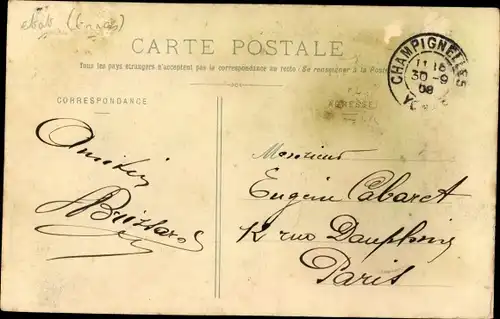 CARTE POSTALE
Tous les pays étrangers n'acceptent pas la correspondance au recto (Se renseigner à la Poste
CORRESPONDANCE
ADRESSE
CHAMPIGNELLES
30 -9
08
Amitiés
Monsieur
Eugène Cabaret
12 rue Dauphine
Paris